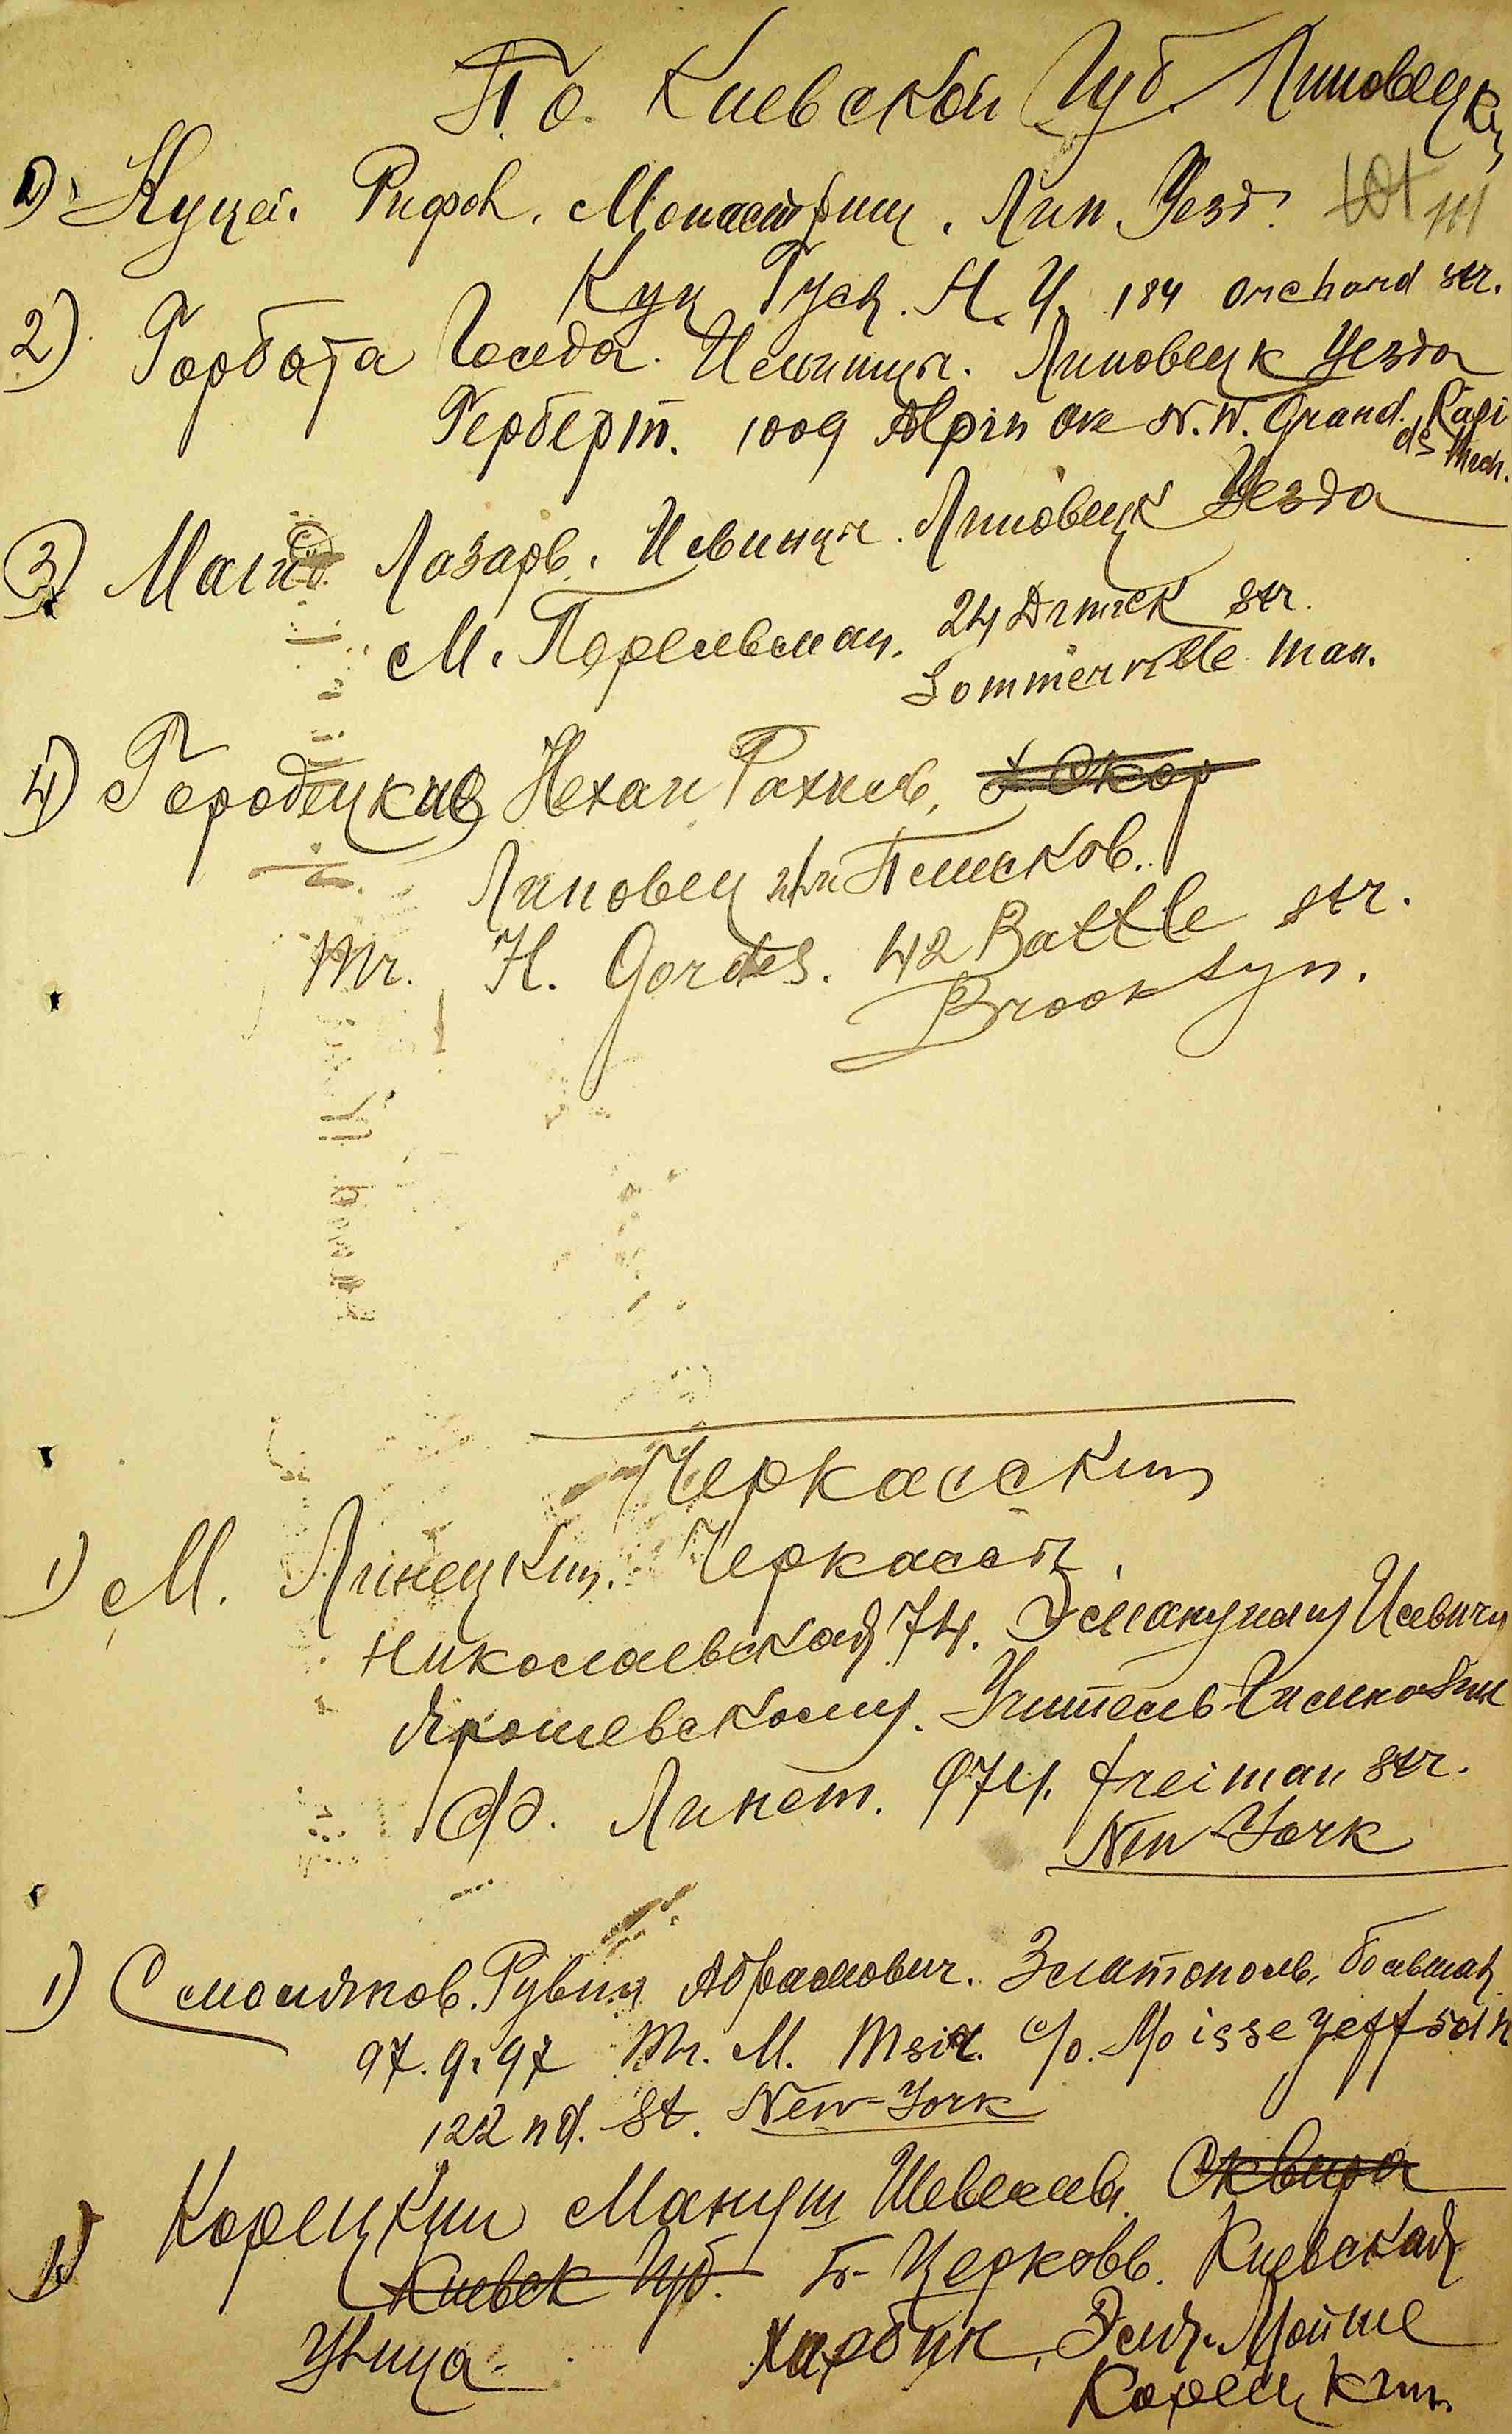 По. Киевской Губ. Липовецк
1) Куцей. Рифок. Монастрищ. Лип. Уезд.
Куц Гуся. Н. У. 184 Orchard str.
2) Горбата Иосефа. Ильинцы. Липовецк Уезда
Герберт. 1009 Alpin ave N.W. Grand. Rapi
ds Mich.
3) Лазарь. Ильинцы. Липовецк Уезда
М. Перельман. 24 str.
Sommerville. Mass.
4) Городецкий Нехам Рахиль.
Липовец или Пписков.
Mr. H. Gordes. 42 Battle str.
Brooklyn.
Черкасский
1) М. Линецкий. Черкассы.
Николаевская 74. Эммануилу Ильичу
Ярошевскому. Учитель Гимназии
Ф. Линет. 974. freiman str.
New York
1) Смоляков. Рувин Абрамович. Златополь, Большая
97. 9. 97 Mr. M. c/o. Moisseyeffsohn
122 nd. St. New-York
1) Корецкий Мануш Шевелев. Сквира
Киевск Губ. Б- Церковь. Киевская
Улица. Харбин, Эля-Мойше
Корецкий.